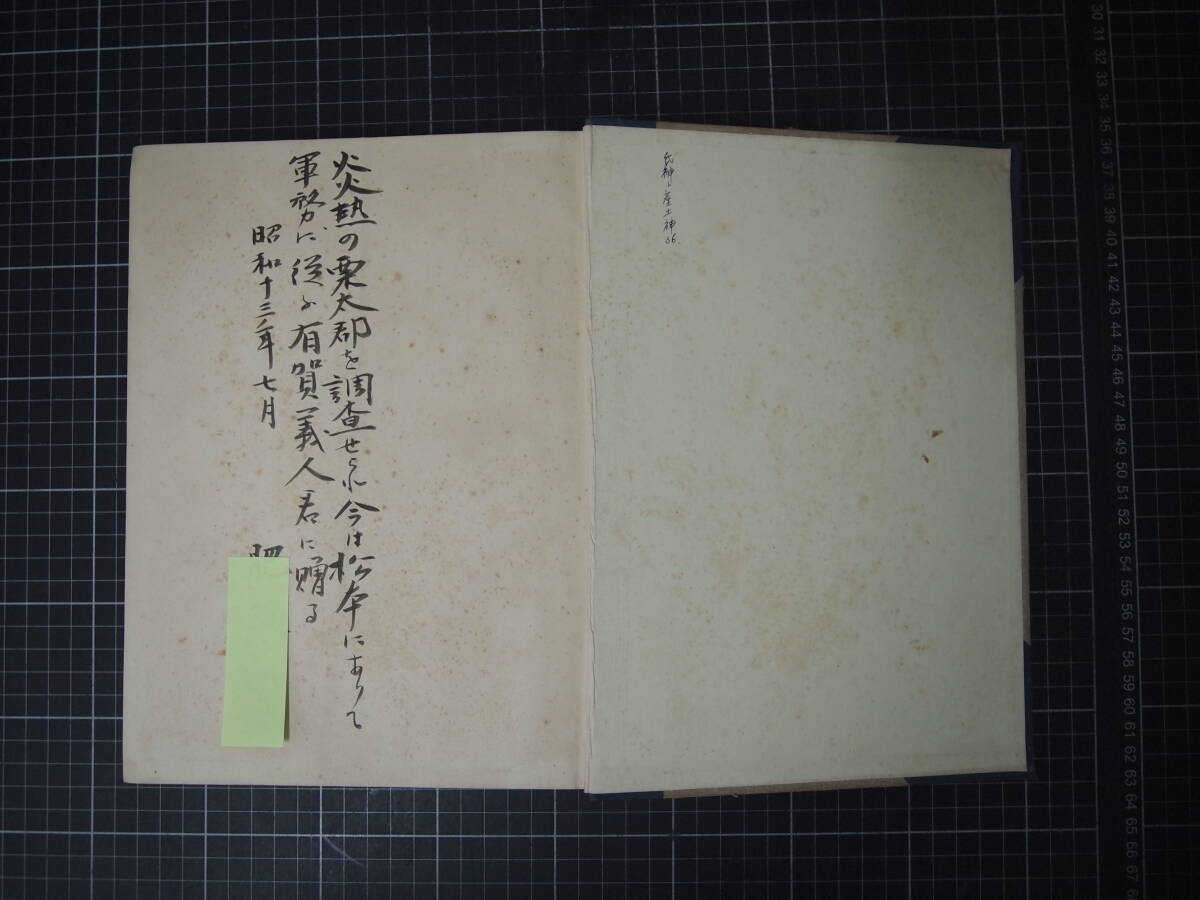 氏神と産土神 36
炎熱の栗太郡を調査せられ今は松本にありて
軍努に従ふ有賀義人君に贈る
昭和十三年七月
肥
30
31
32
33
34
35
36
37
38
39
40
41
42
43
44
45
46
47
48
49
50
51
52
53
54
55
56
57
58
59
60
61
62
63
64
65
66
67